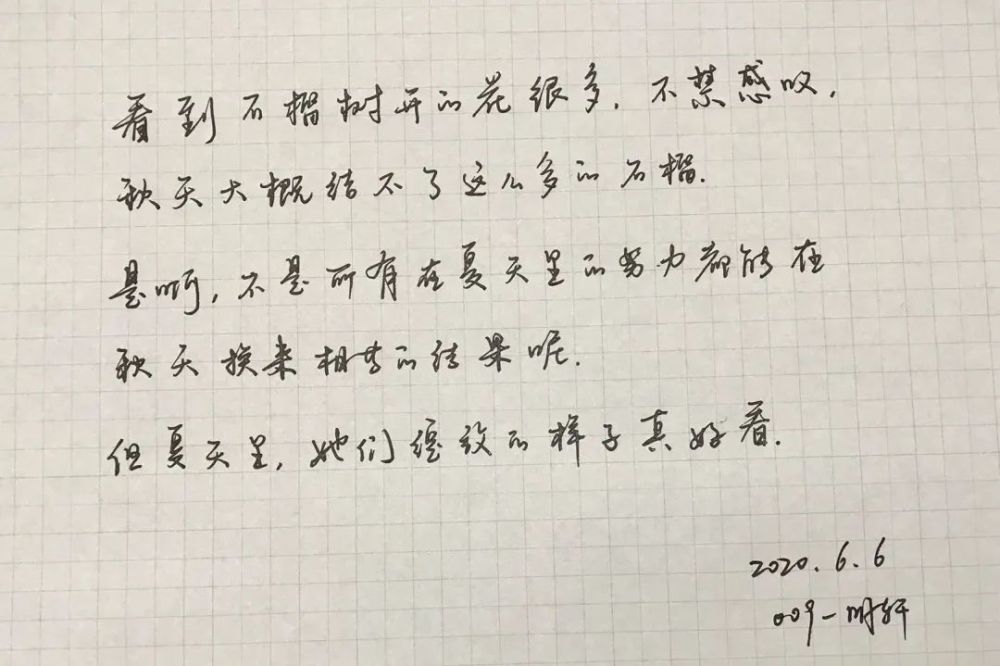 看到石榴树开的花很多，不禁感叹，
秋天大概结不了这么多的石榴.
是啊，不是所有在夏天里的努力都能在
秋天换来相等的结果呢.
但夏天里，她们绽放的样子真好看.
2020.6.6
009-明轩